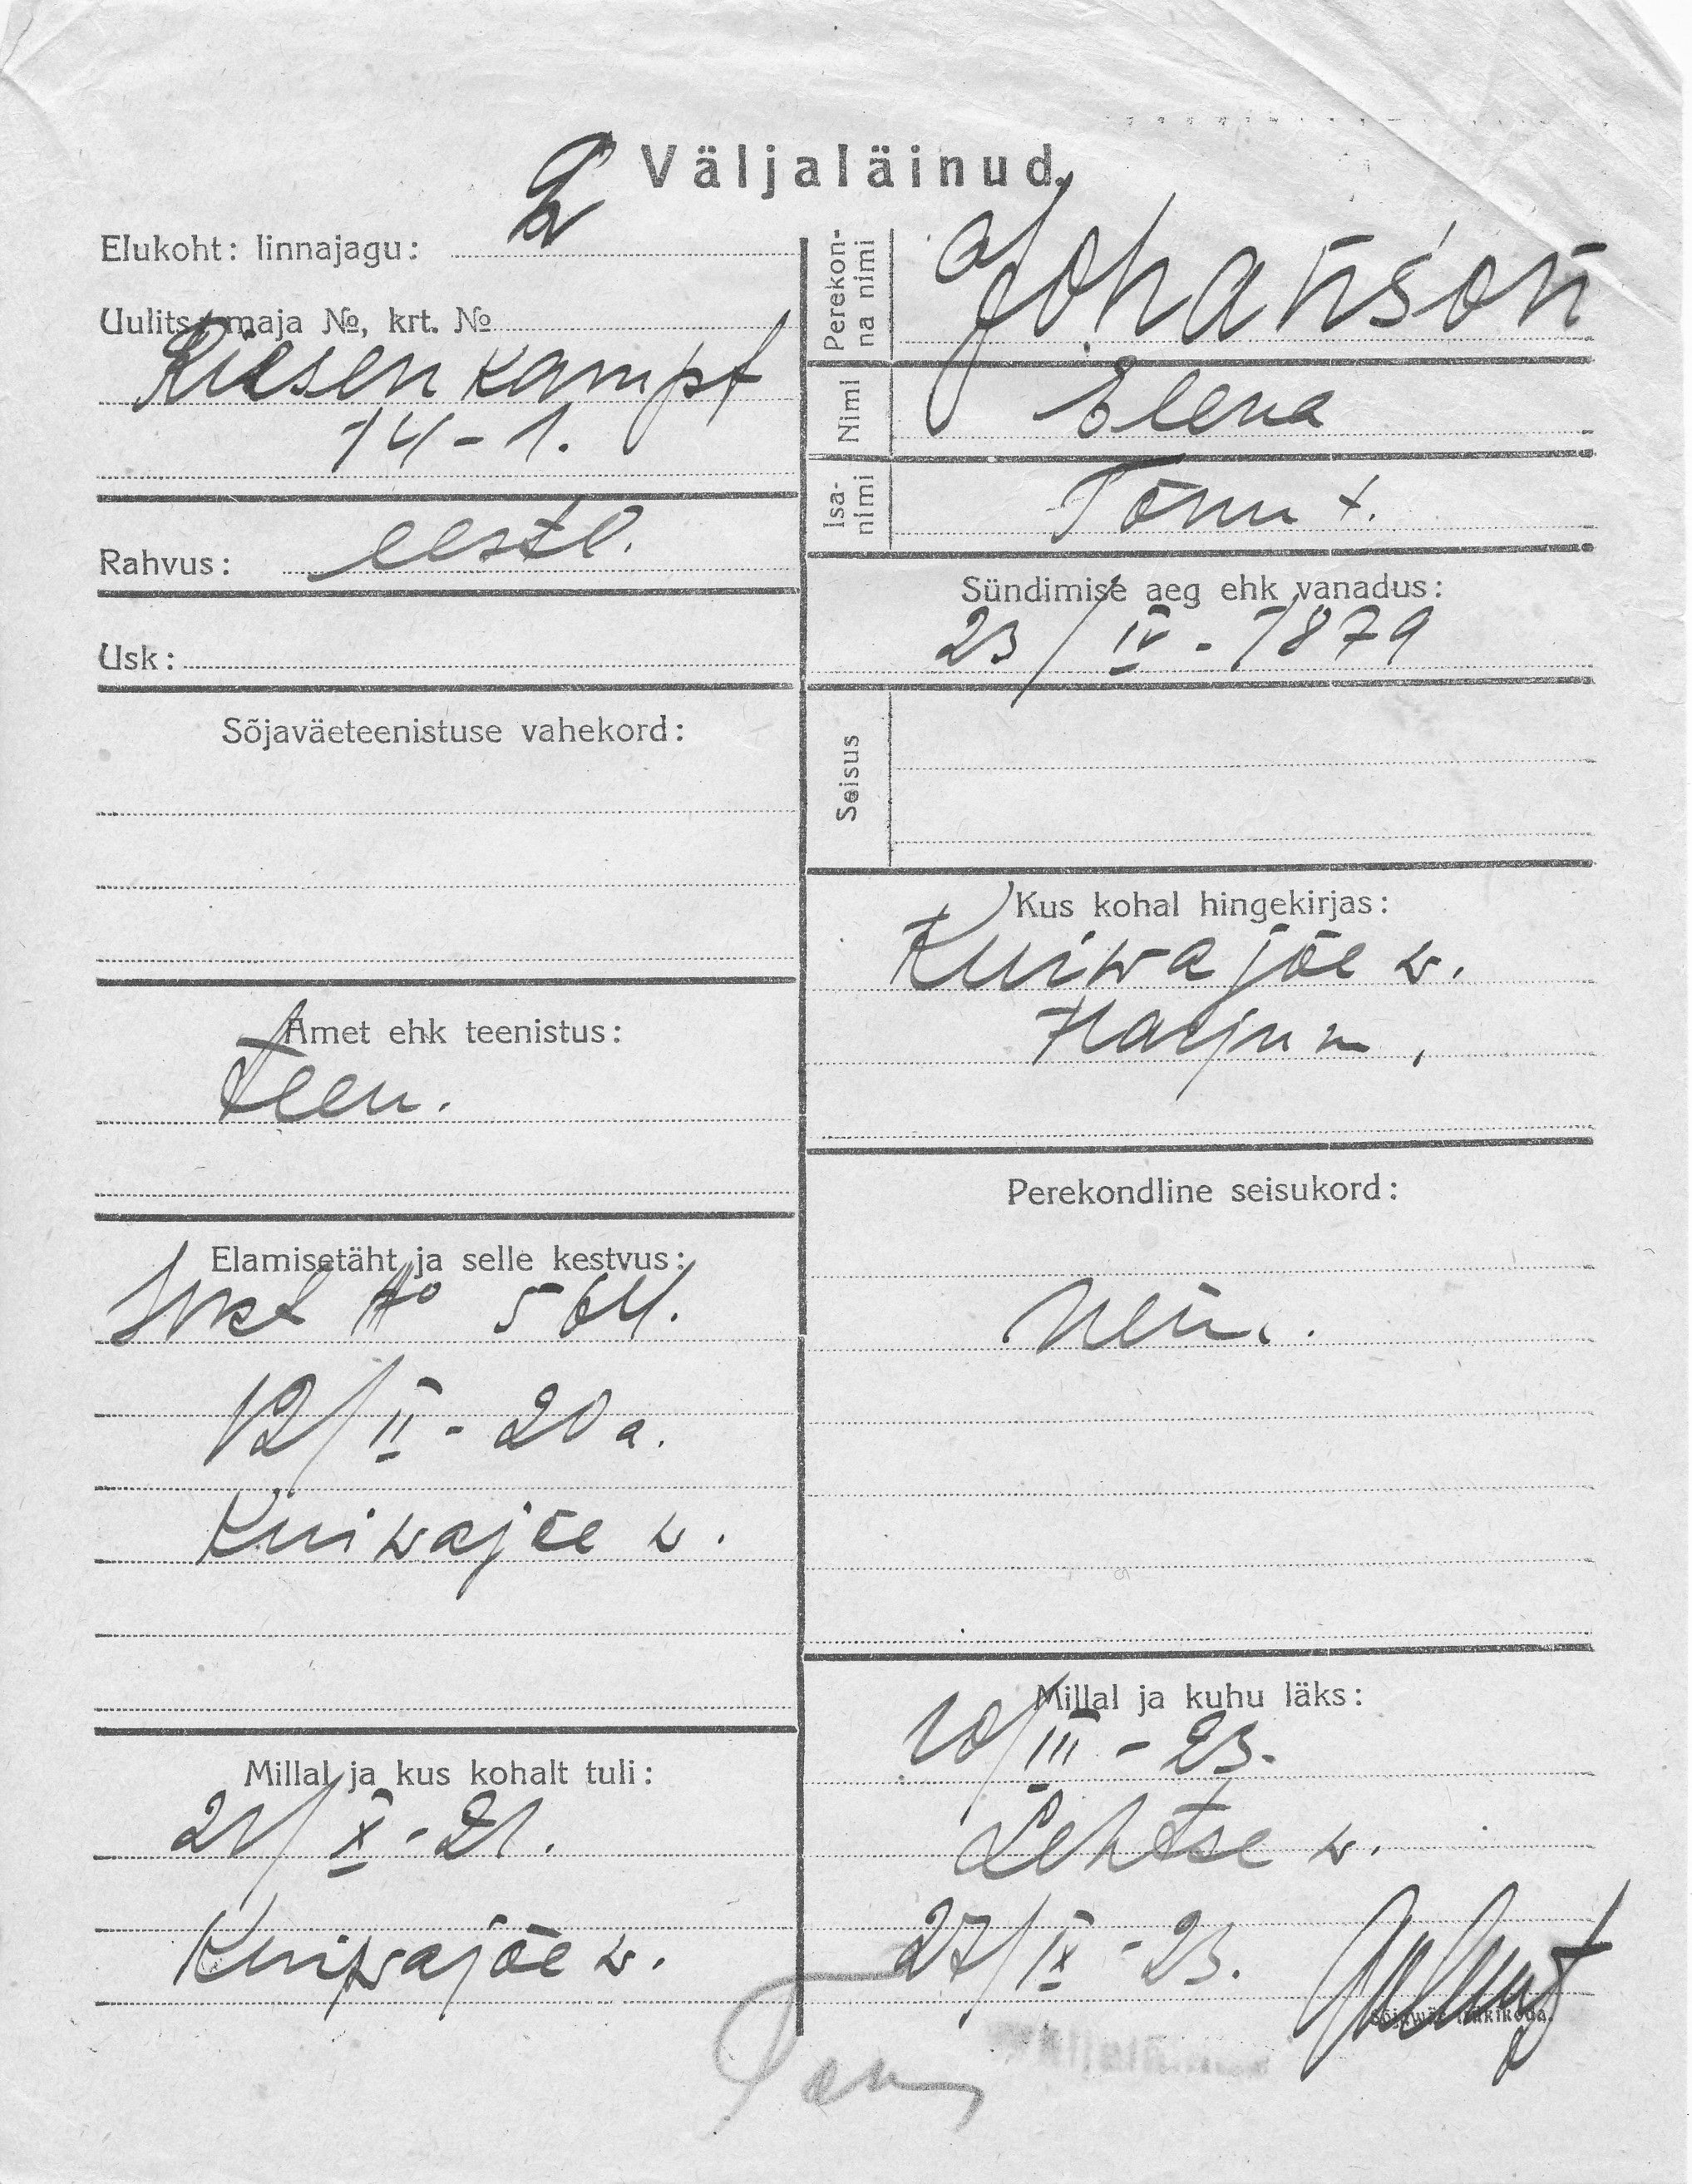 Väljaläinud.
Elukoht: linnajagu: 2
Uulits, maja №, krt. №
Riesenkampf
14 - 1.
Rahvus: eestl.
Usk:
Sõjaväeteenistuse vahekord:
Amet ehk teenistus:
teen.
Elamisetäht ja selle kestvus:
№ 564.
12/II - 20 a.
Kuiwajõe w.
Millal ja kus kohalt tuli:
21/X - 21.
Kuiwajõe w.
Perekonna nimi
Johanson
Nimi
Elena
Isanimi
Tõnu t.
Sündimise aeg ehk vanadus:
23/IV - 1879
Seisus
Kus kohal hingekirjas:
Kuiwajõe w.
Harju m.
Perekondline seisukord:
Millal ja kuhu läks:
10/III - 23.
Lehtse w.
27/IX - 23.